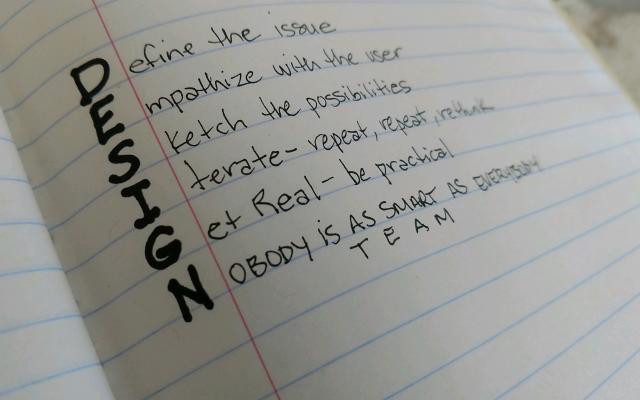 Define the issue
Empathize with the user
Sketch the possibilities
Iterate- repeat, repeat, rethink
Get Real- be practical
NOBODY iS AS SMART AS EVERYBODY
TEAM